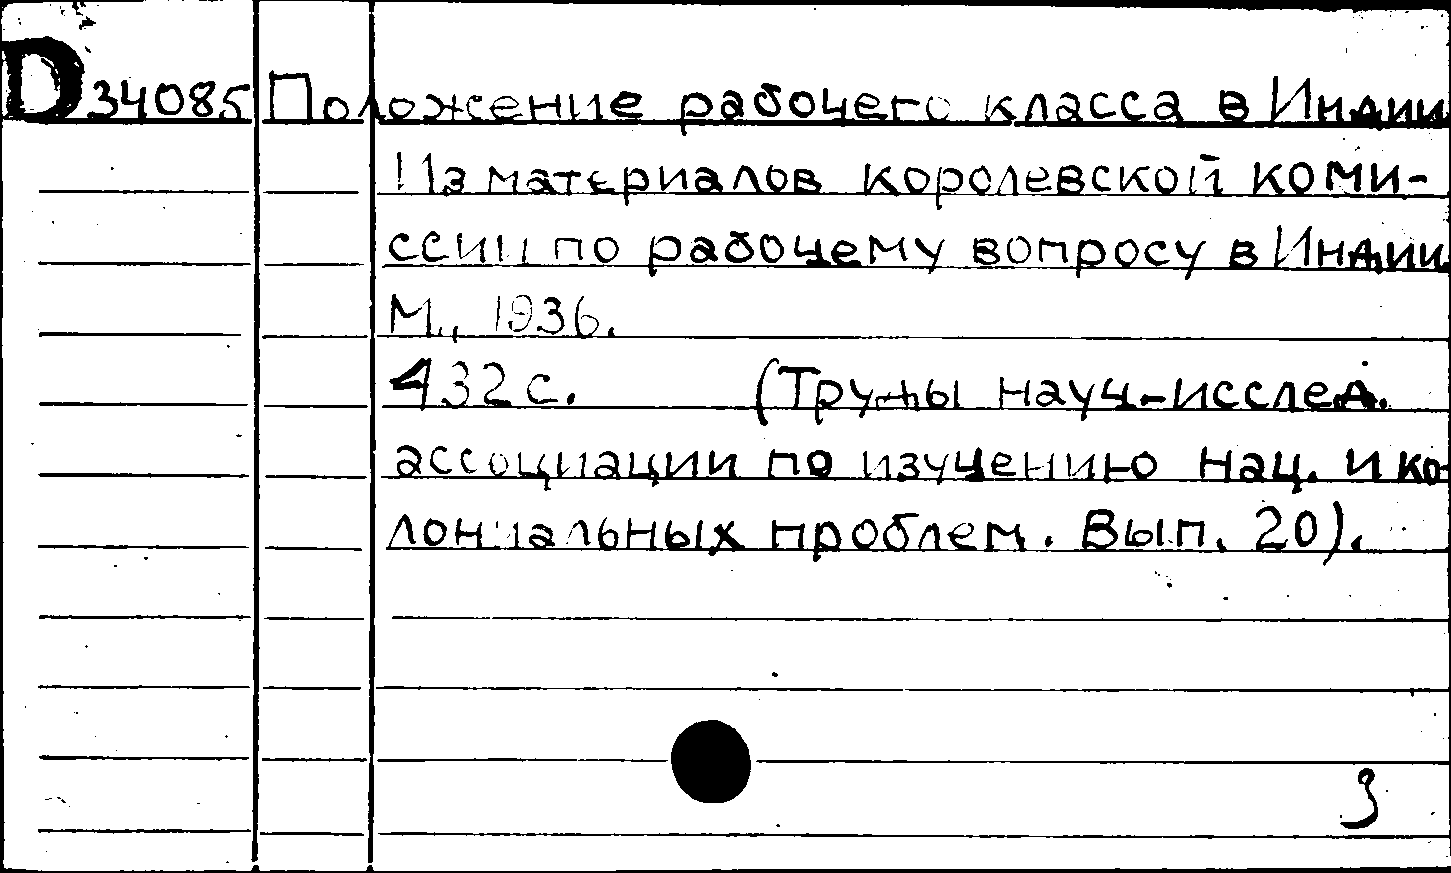 D34085 Положение рабочего класса в Индии
Из материалов королевской коми-
ссии по рабочему вопросу в Индии.
М., 1936.
432 с. (Труды науч-исслед.
ассоциации по изучению нац. и ко-
лониальных проблем. Вып. 20).